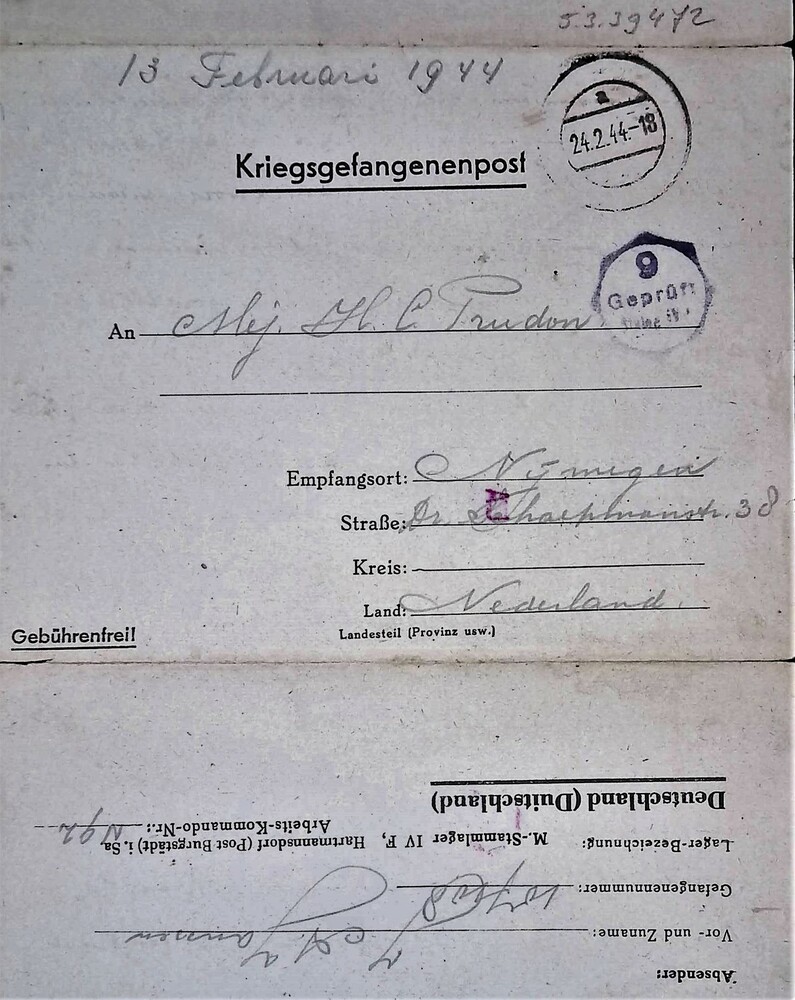 5.3.39472
13 Februari 1944
a
24.2.44.-18
Kriegsgefangenenpost
9
Geprüft
An Mej. H. C. Prudon
Empfangsort: Nijmegen
Straße: Dr. Schaepmanstr. 38
Kreis:
Land: Nederland.
Landesteil (Provinz usw.)
Gebührenfrei!
Absender:
Vor- und Zuname: Jansen
Gefangenennummer:
Lager-Bezeichnung: M.-Stammlager IV F, Hartmannsdorf (Post Burgstädt) i. Sa.
Arbeits-Kommando-Nr.: N92
Deutschland (Duitschland)